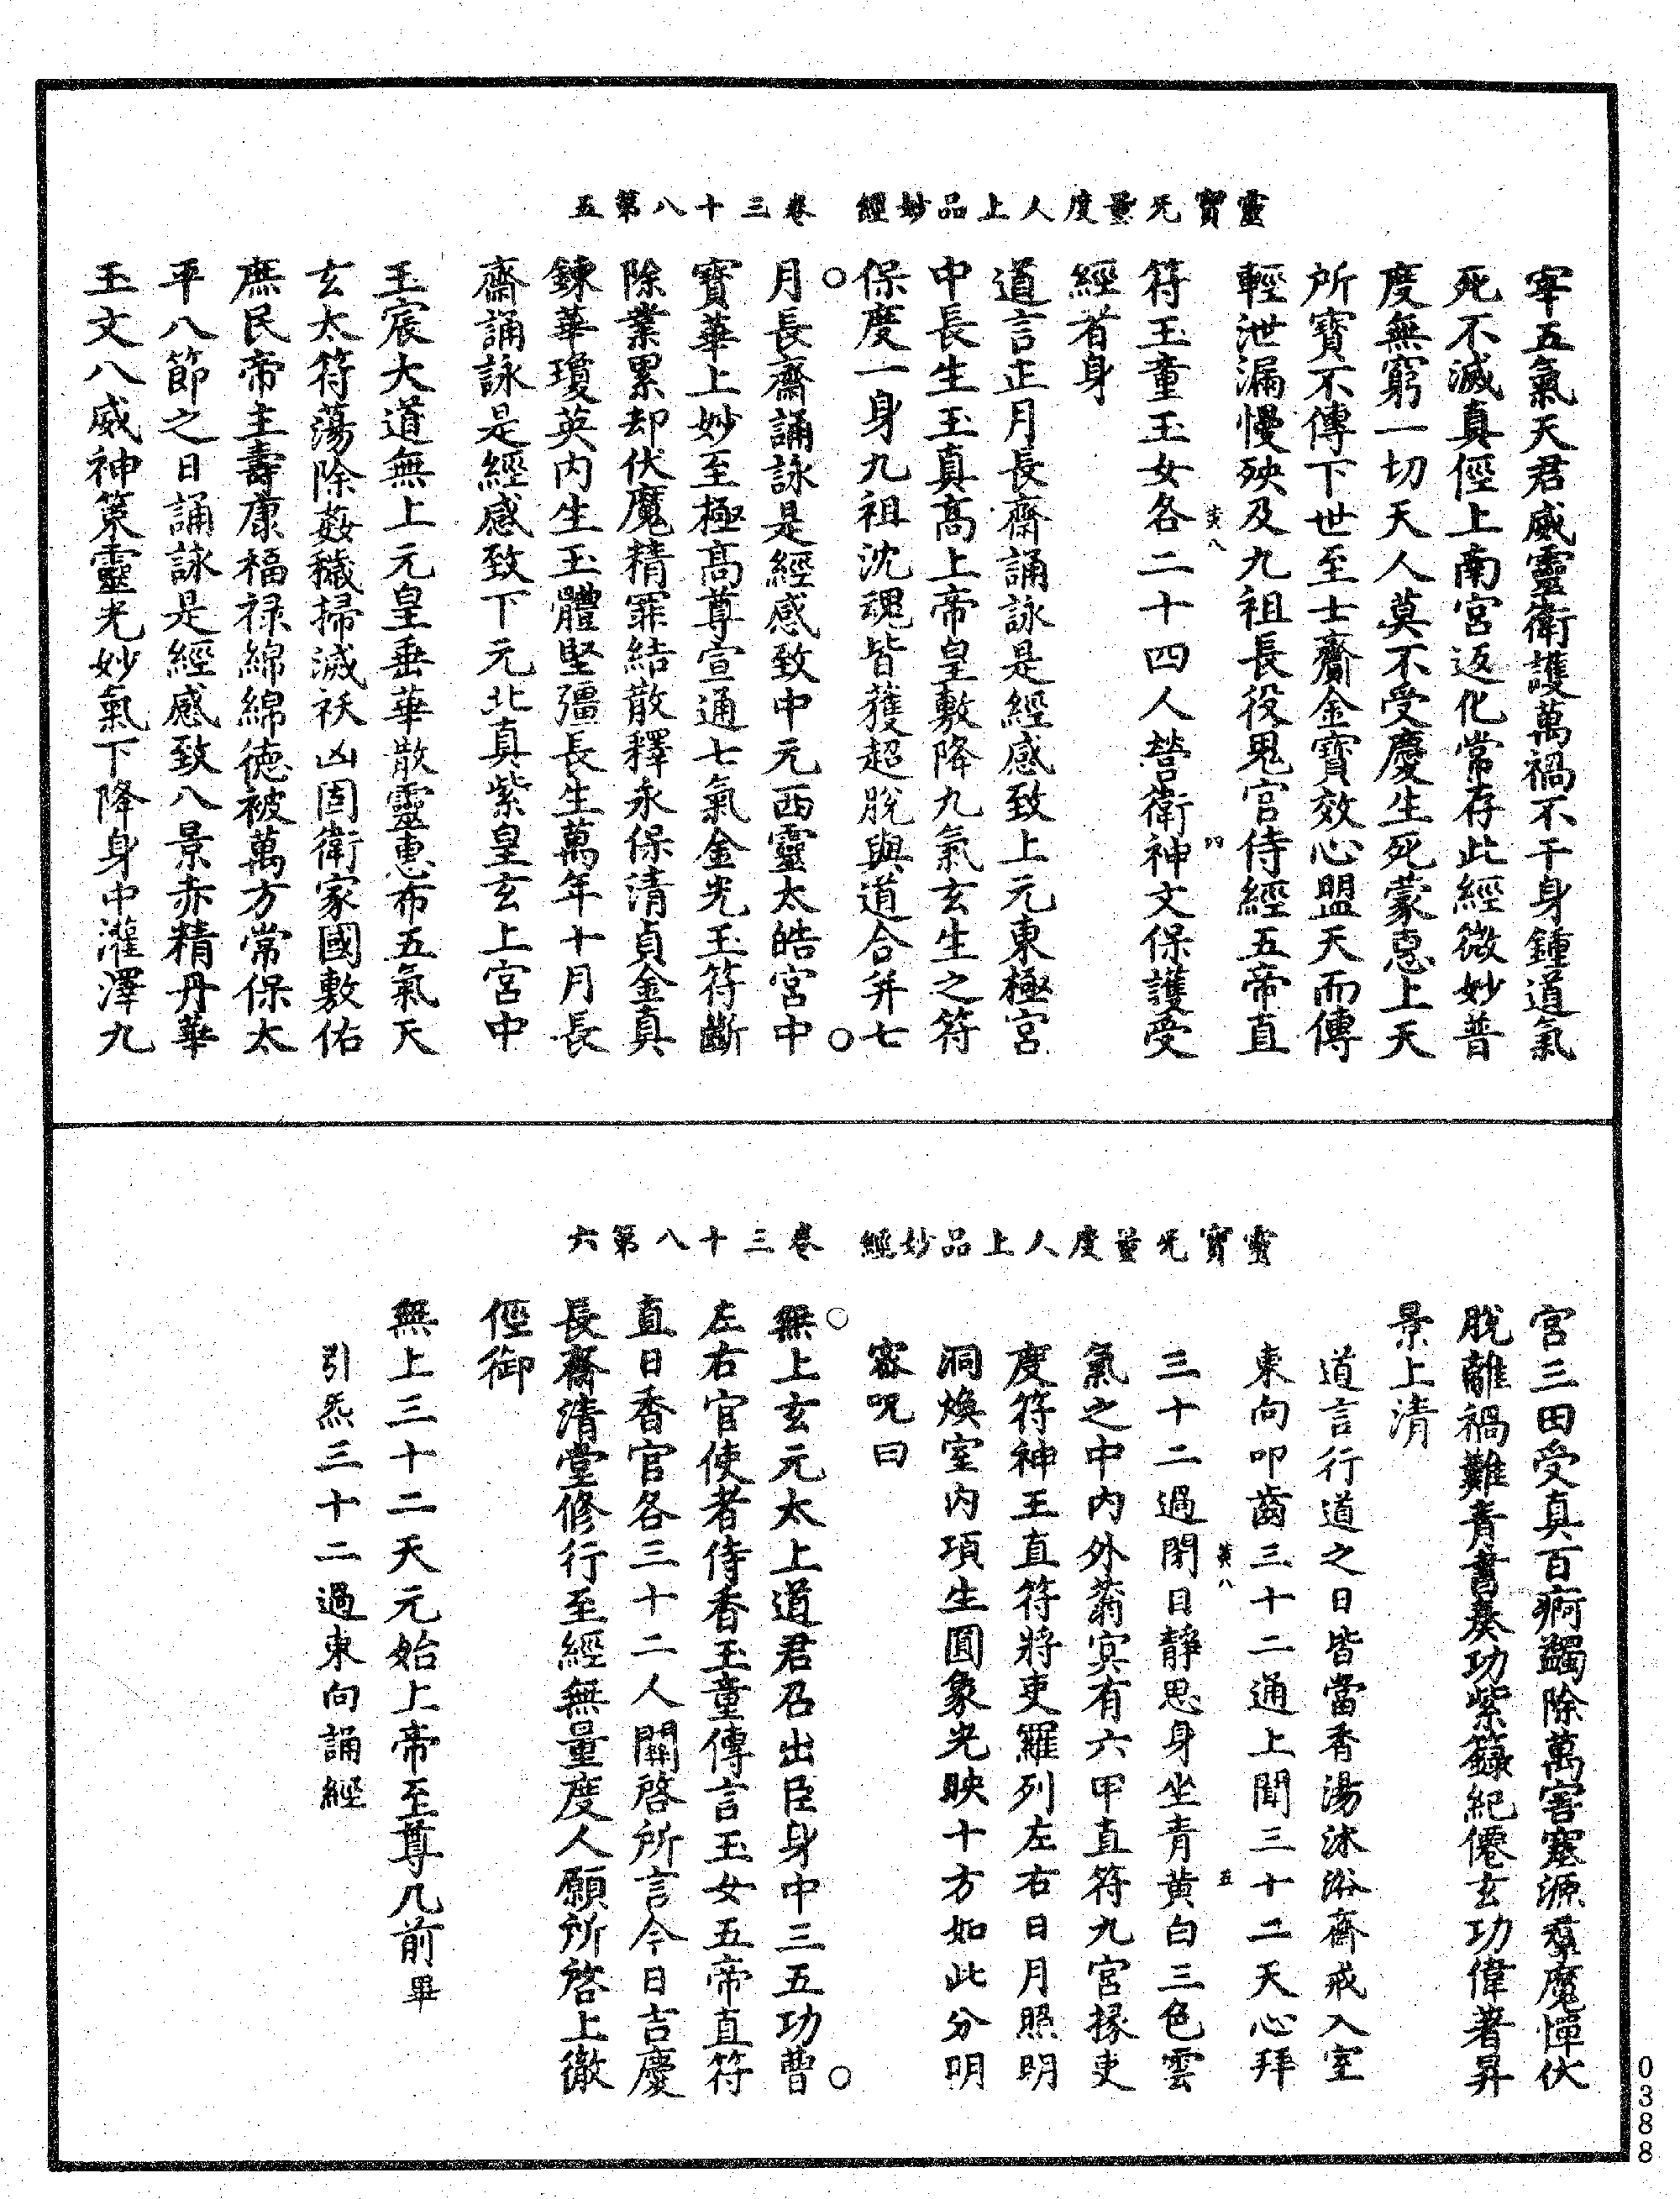 靈寶无量度人上品妙經　卷三十八第五
宰五氣天君威靈衛護萬禍不干身鍾道氣
死不滅真徑上南宮返化常存此經微妙普
度無窮一切天人莫不受慶生死蒙惠上天
所寶不傳下世至士齎金寶效心盟天而傳
輕泄漏慢殃及九祖長役鬼官侍經五帝直
符玉童玉女各二十四人營衛神文保護受
經者身
道言正月長齋誦詠是經感致上元東極宮
中長生玉真高上帝皇敷降九氣玄生之符
保度一身九祖沈魂皆獲超脫與道合并七
月長齋誦詠是經感致中元西靈太皓宮中
寶華上妙至極高尊宣通七氣金光玉符斷
除業累却伏魔精罪結散釋永保清貞金真
鍊華瓊英内生玉體堅彊長生萬年十月長
齋誦詠是經感致下元北真紫皇玄上宮中
玉宸大道無上元皇垂華散靈惠布五氣天
玄太符蕩除姦穢掃滅祅凶固衛家國敷佑
庶民帝主壽康福禄綿綿德被萬方常保太
平八節之日誦詠是經感致八景赤精丹華
玉文八威神策靈光妙氣下降身中灌澤九
靈寶无量度人上品妙經　卷三十八第六
宮三田受真百痾蠲除萬害塞源羣魔憚伏
脫離禍難青書奏功紫籙紀僊玄功偉著昇
景上清
道言行道之日皆當香湯沐浴齋戒入室
東向叩齒三十二通上聞三十二天心拜
三十二過閉目靜思身坐青黄白三色雲
氣之中内外蓊冥有六甲直符九宮掾吏
度符神王直符將吏羅列左右日月照明
洞煥室内項生圓象光映十方如此分明
密呪曰
無上玄元太上道君召出臣身中三五功曹
左右官使者侍香玉童傳言玉女五帝直符
直日香官各三十二人關啓所言今日吉慶
長齋清堂修行至經無量度人願所啓上徹
徑御
無上三十二天元始上帝至尊几前畢
引炁三十二過東向誦經
0388